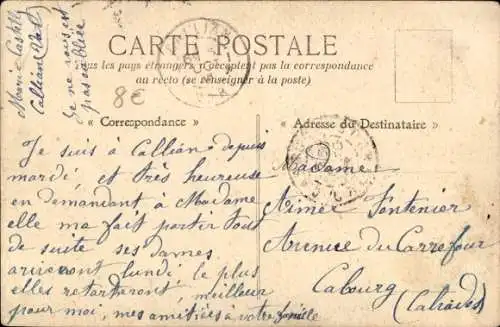 Marie Castelly
Callian Var
Je ne vous ai
pas oubliée
8€
CARTE POSTALE
Tous les pays étrangers n'acceptent pas la correspondance
au recto (se renseigner à la poste)
« Correspondance »
« Adresse du Destinataire »
Je suis à Callian depuis
mardi, et très heureuse
en demandant à Madame
elle ma fait partir tous
de suite ses dames
arriveront lundi, le plus
elles retarteront, meilleur
pour moi, mes amitiées a votre famille
Madame
Aimée Fontenier
Avenue du Carrefour
Cabourg
(Calvados)